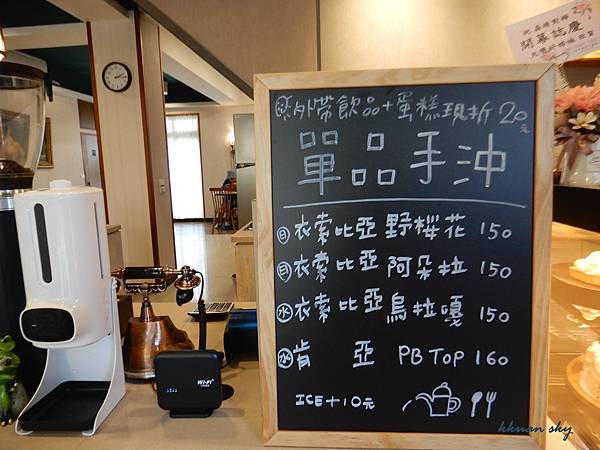 外帶飲品+蛋糕現折20元
單品手沖
日衣索比亞 野桜花 150
日衣索比亞 阿朵拉 150
水衣索比亞烏拉嘎 150
水肯亞 PB TOP 160
ICE+10元
開幕誌慶
WiFi
kkuan sky